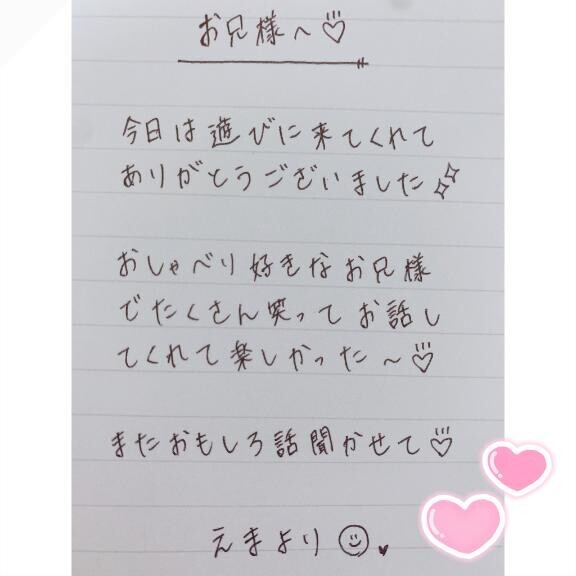 お兄様へ♡
今日は遊びに来てくれて
ありがとうございました✨
おしゃべり好きなお兄様
でたくさん笑ってお話し
てくれて楽しかった～♡
またおもしろ話聞かせて♡
えまより☺♥